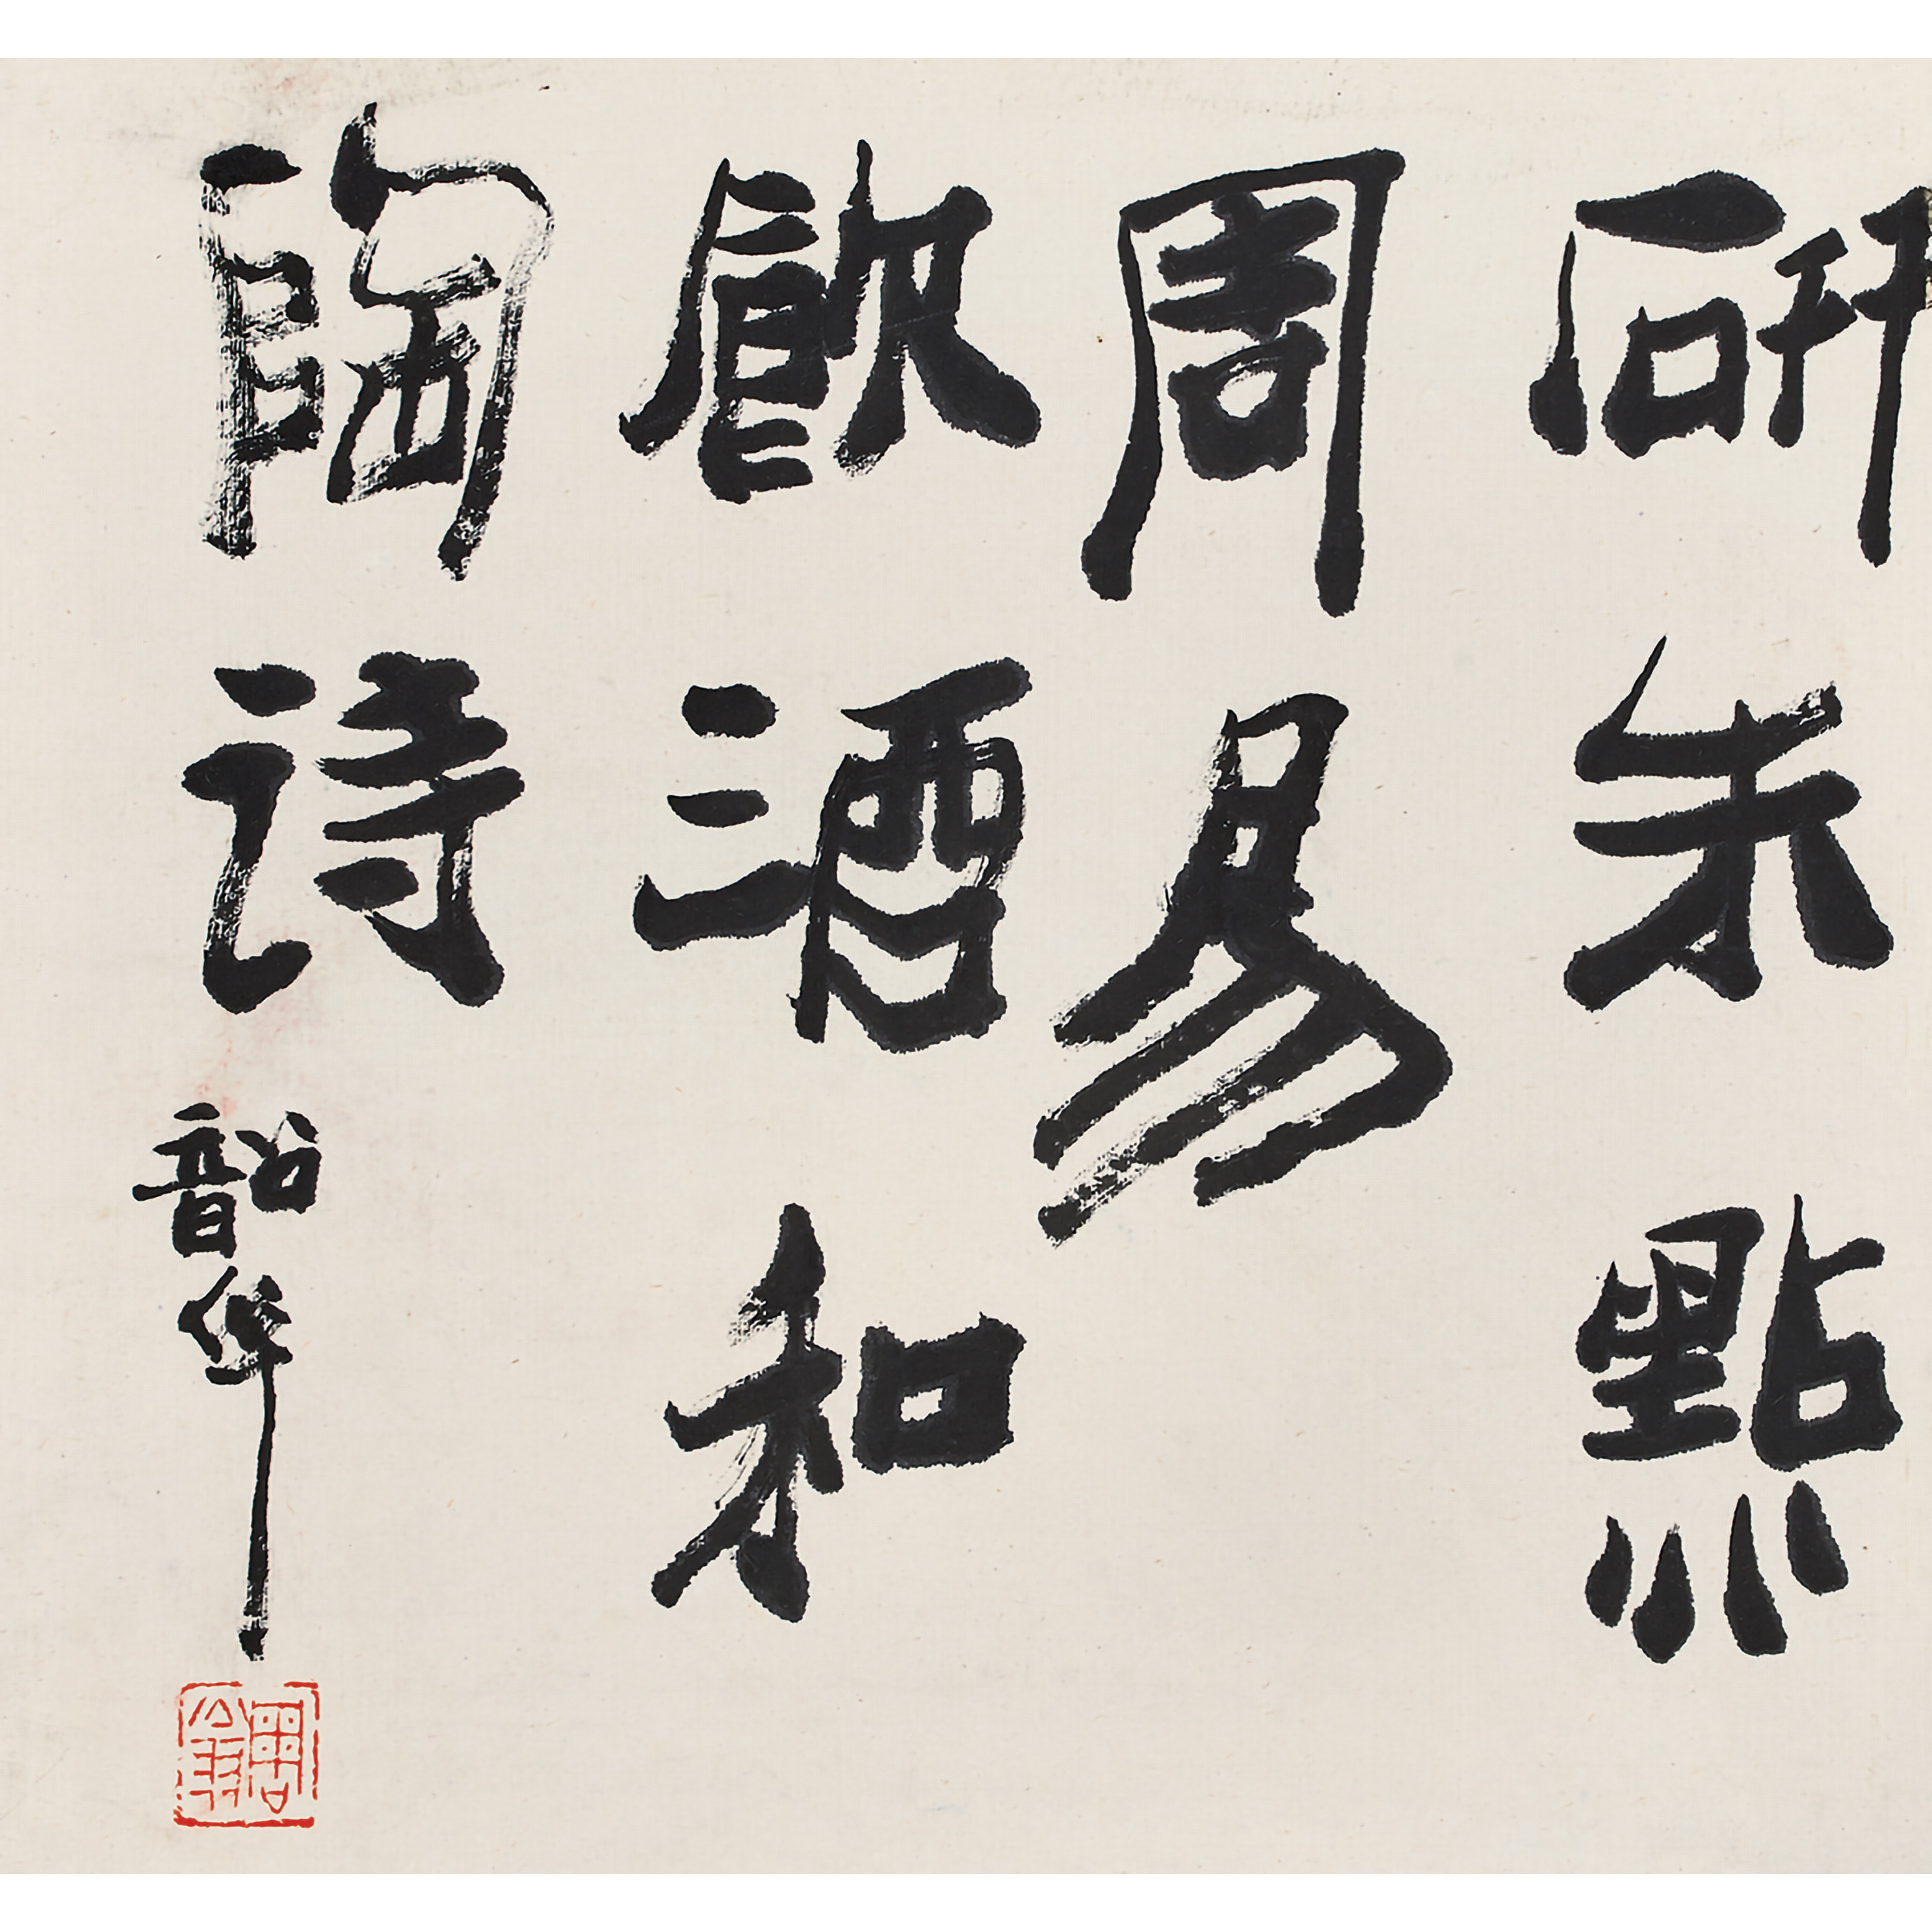 研朱點
周易
飲酒和
陶诗
韶华